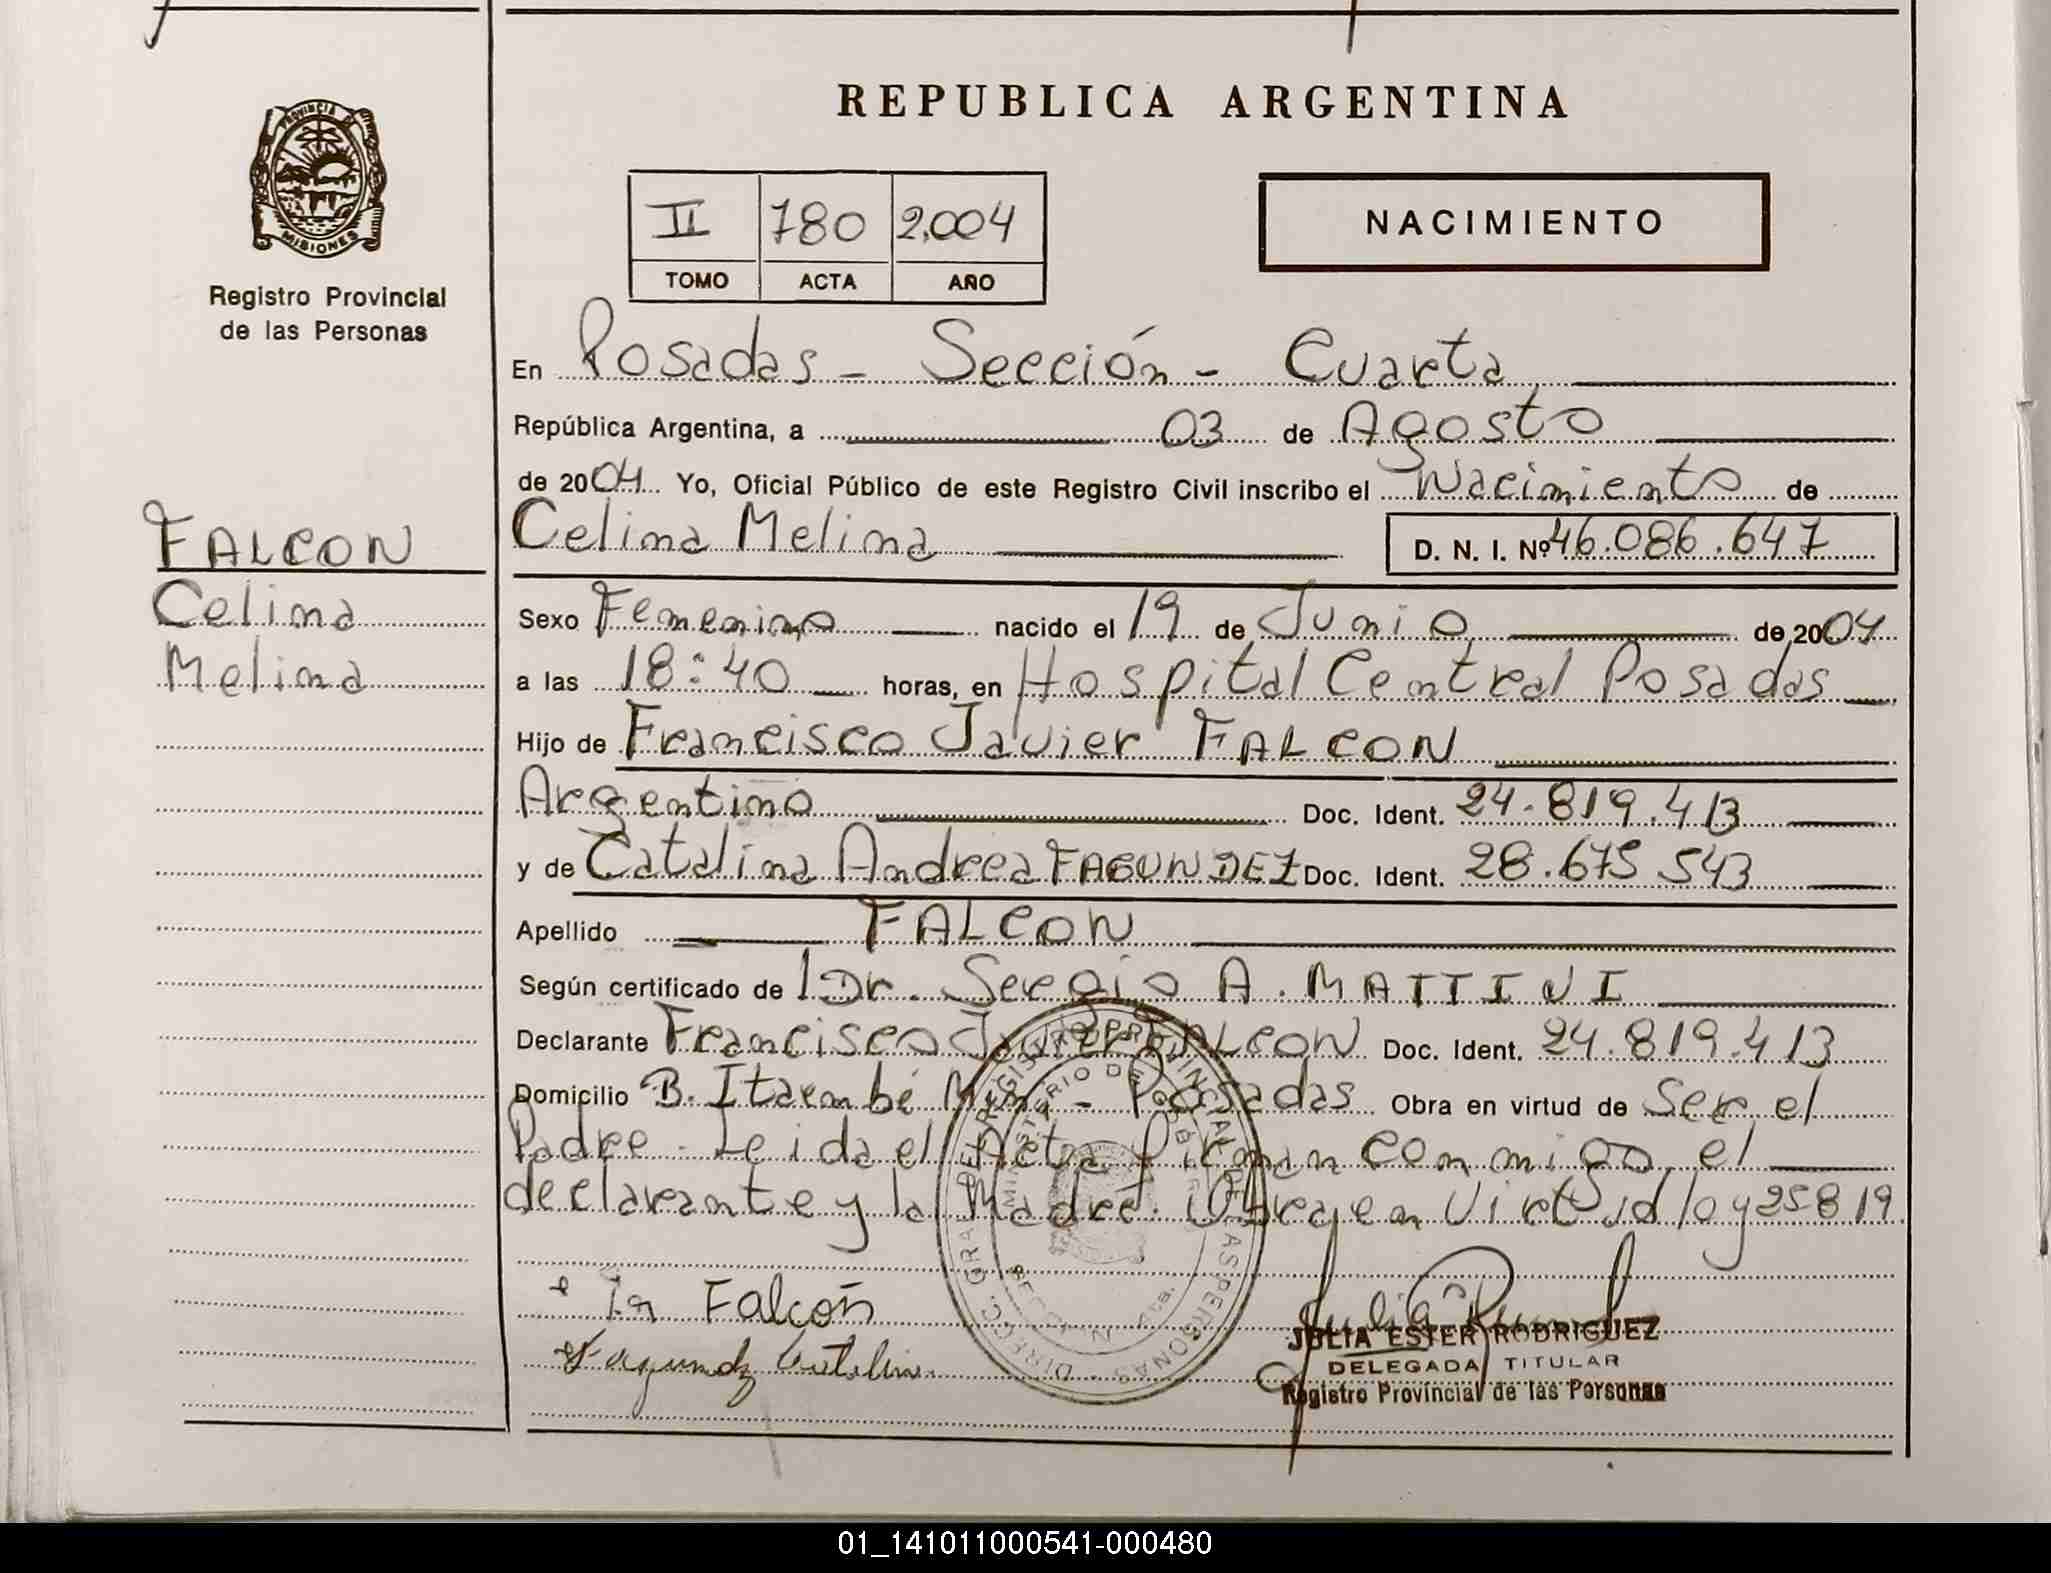 REPUBLICA ARGENTINA
PROVINCIA DE
MISIONES
Registro Provincial
de las Personas
II 780 2.004
TOMO ACTA AÑO
NACIMIENTO
En Posadas - Sección - Cuarta
República Argentina, a 03 de Agosto
de 2004 Yo, Oficial Público de este Registro Civil inscribo el Nacimiento de
FALCON
Celina
Melina
Celina Melina D. N. I. Nº 46.086.647
Sexo Femenino nacido el 19 de Junio de 2004
a las 18:40 horas, en Hospital Central Posadas
Hijo de Francisco Javier FALCON
Argentino Doc. Ident. 24.819.413
y de Catalina Andrea FAGUNDEZ Doc. Ident. 28.675.543
Apellido FALCON
Según certificado de Dr. Sergio A. MATTIVI
Declarante Francisco Javier FALCON Doc. Ident. 24.819.413
Domicilio B. Itaembé Miní - Posadas Obra en virtud de Ser el
Padre - Leida el Acta Firman conmigo, el
declarante y la Madre. Obra en Virtud ley 25819.
Falcón
Fagundez Catalin
JULIA ESTER RODRIGUEZ
DELEGADA TITULAR
Registro Provincial de las Personas
01_141011000541-000480